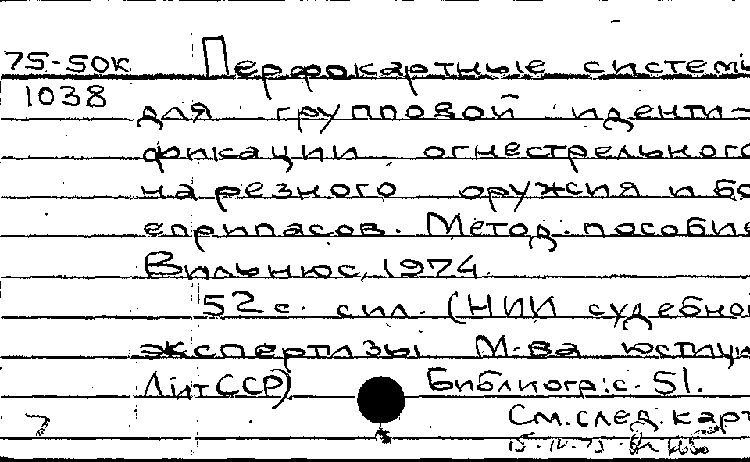 75-50К Перфокартные системы
1038 для групповой иденти-
фикации огнестрельного
нарезного оружия и бо
еприпасов. Метод. пособие
Вильнюс, 1974.
52 с. с ил. (НИИ судебной
экспертизы М-ва юстици
Лит ССР) Библиогр: с. 51.
7 См. след. карт
15.IV.75